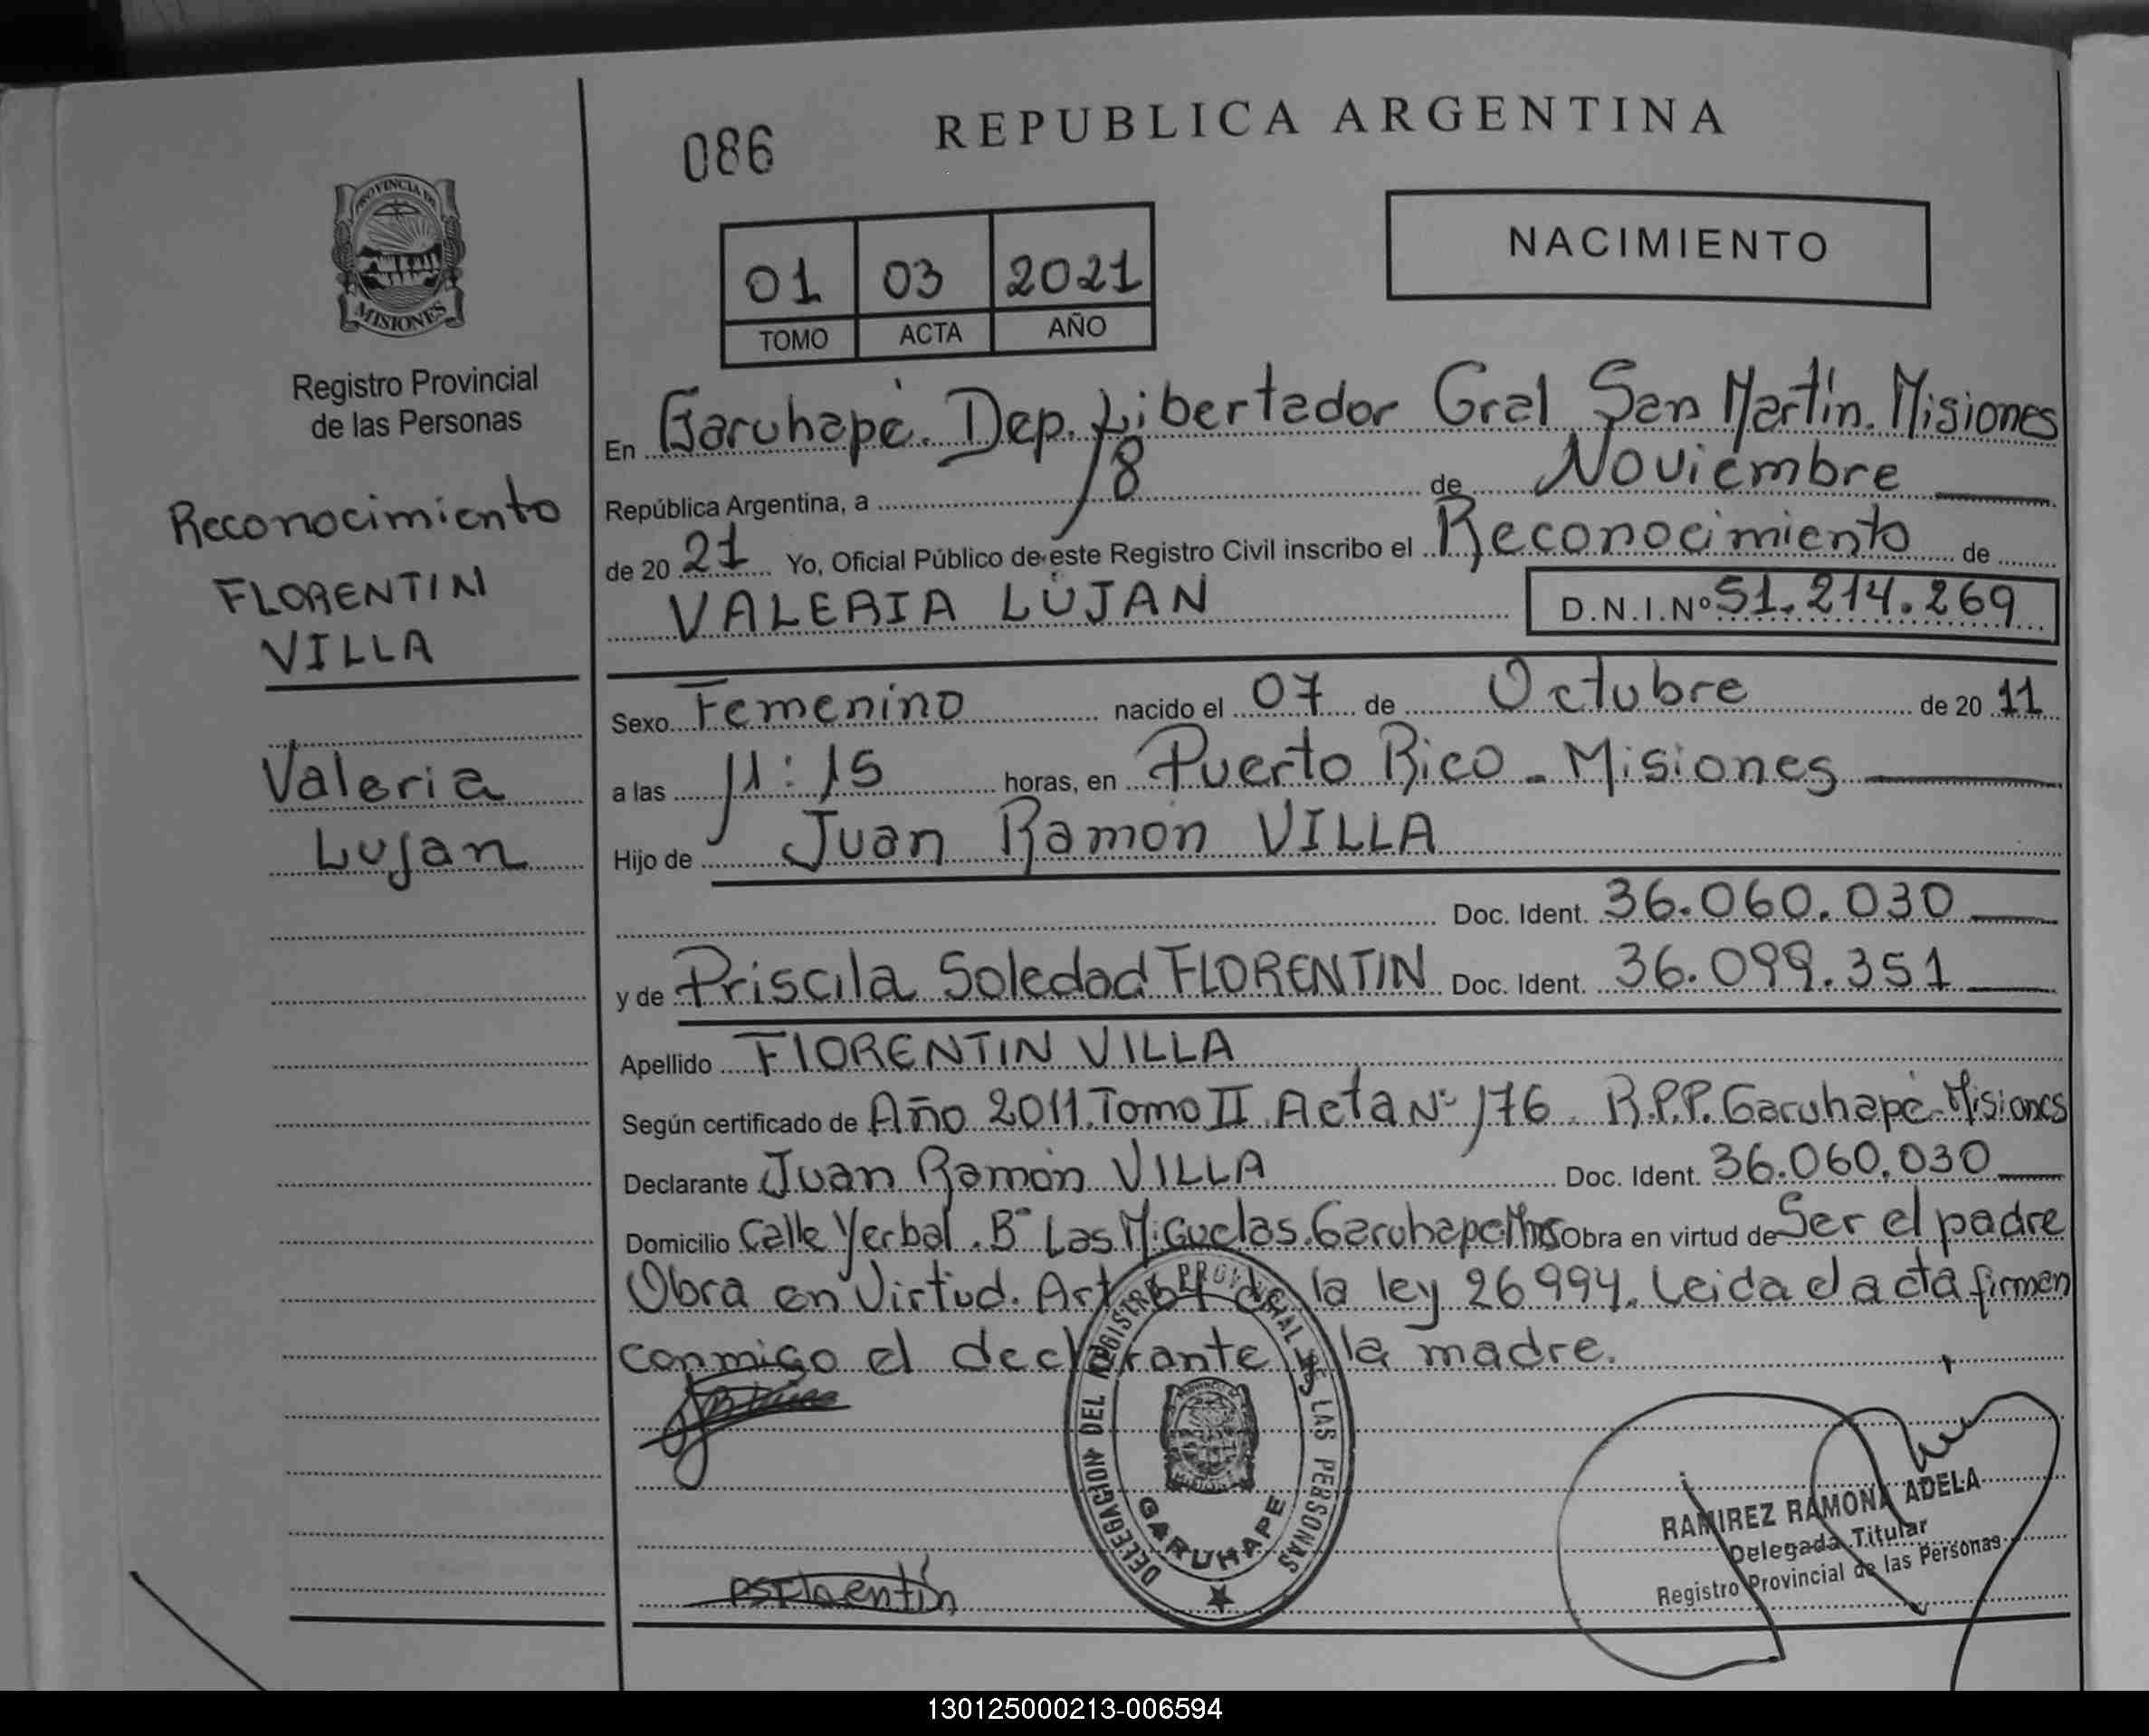 086
REPUBLICA ARGENTINA
PROVINCIA DE
MISIONES
Registro Provincial
de las Personas
01 03 2021
TOMO ACTA AÑO
NACIMIENTO
Reconocimiento
FLORENTIN
VILLA
Valeria
Lujan
En Garuhapé. Dep. Libertador Gral San Martín. Misiones
República Argentina, a 18 de Noviembre
de 20 21 Yo, Oficial Público de este Registro Civil inscribo el Reconocimiento de
VALERIA LUJAN D.N.I.Nº 51.214.269
Sexo Femenino nacido el 07 de Octubre de 20 11
a las 11:15 horas, en Puerto Rico - Misiones
Hijo de Juan Ramón VILLA
Doc. Ident. 36.060.030
y de Priscila Soledad FLORENTIN Doc. Ident. 36.099.351
Apellido FLORENTIN VILLA
Según certificado de Año 2011. Tomo II. Acta Nº 176. R.P.P. Garuhapé-Misiones
Declarante Juan Ramón VILLA Doc. Ident. 36.060.030
Domicilio Calle Yerbal. Bº Las Miguelas. Garuhape Mns Obra en virtud de Ser el padre
Obra en Virtud. Art 64 de la ley 26994. Leida el acta firman
conmigo el declarante y la madre.
DELEGACION DEL REGISTRO PROVINCIAL DE LAS PERSONAS
GARUHAPE
RAMIREZ RAMONA ADELA
Delegada Titular
Registro Provincial de las Personas
130125000213-006594